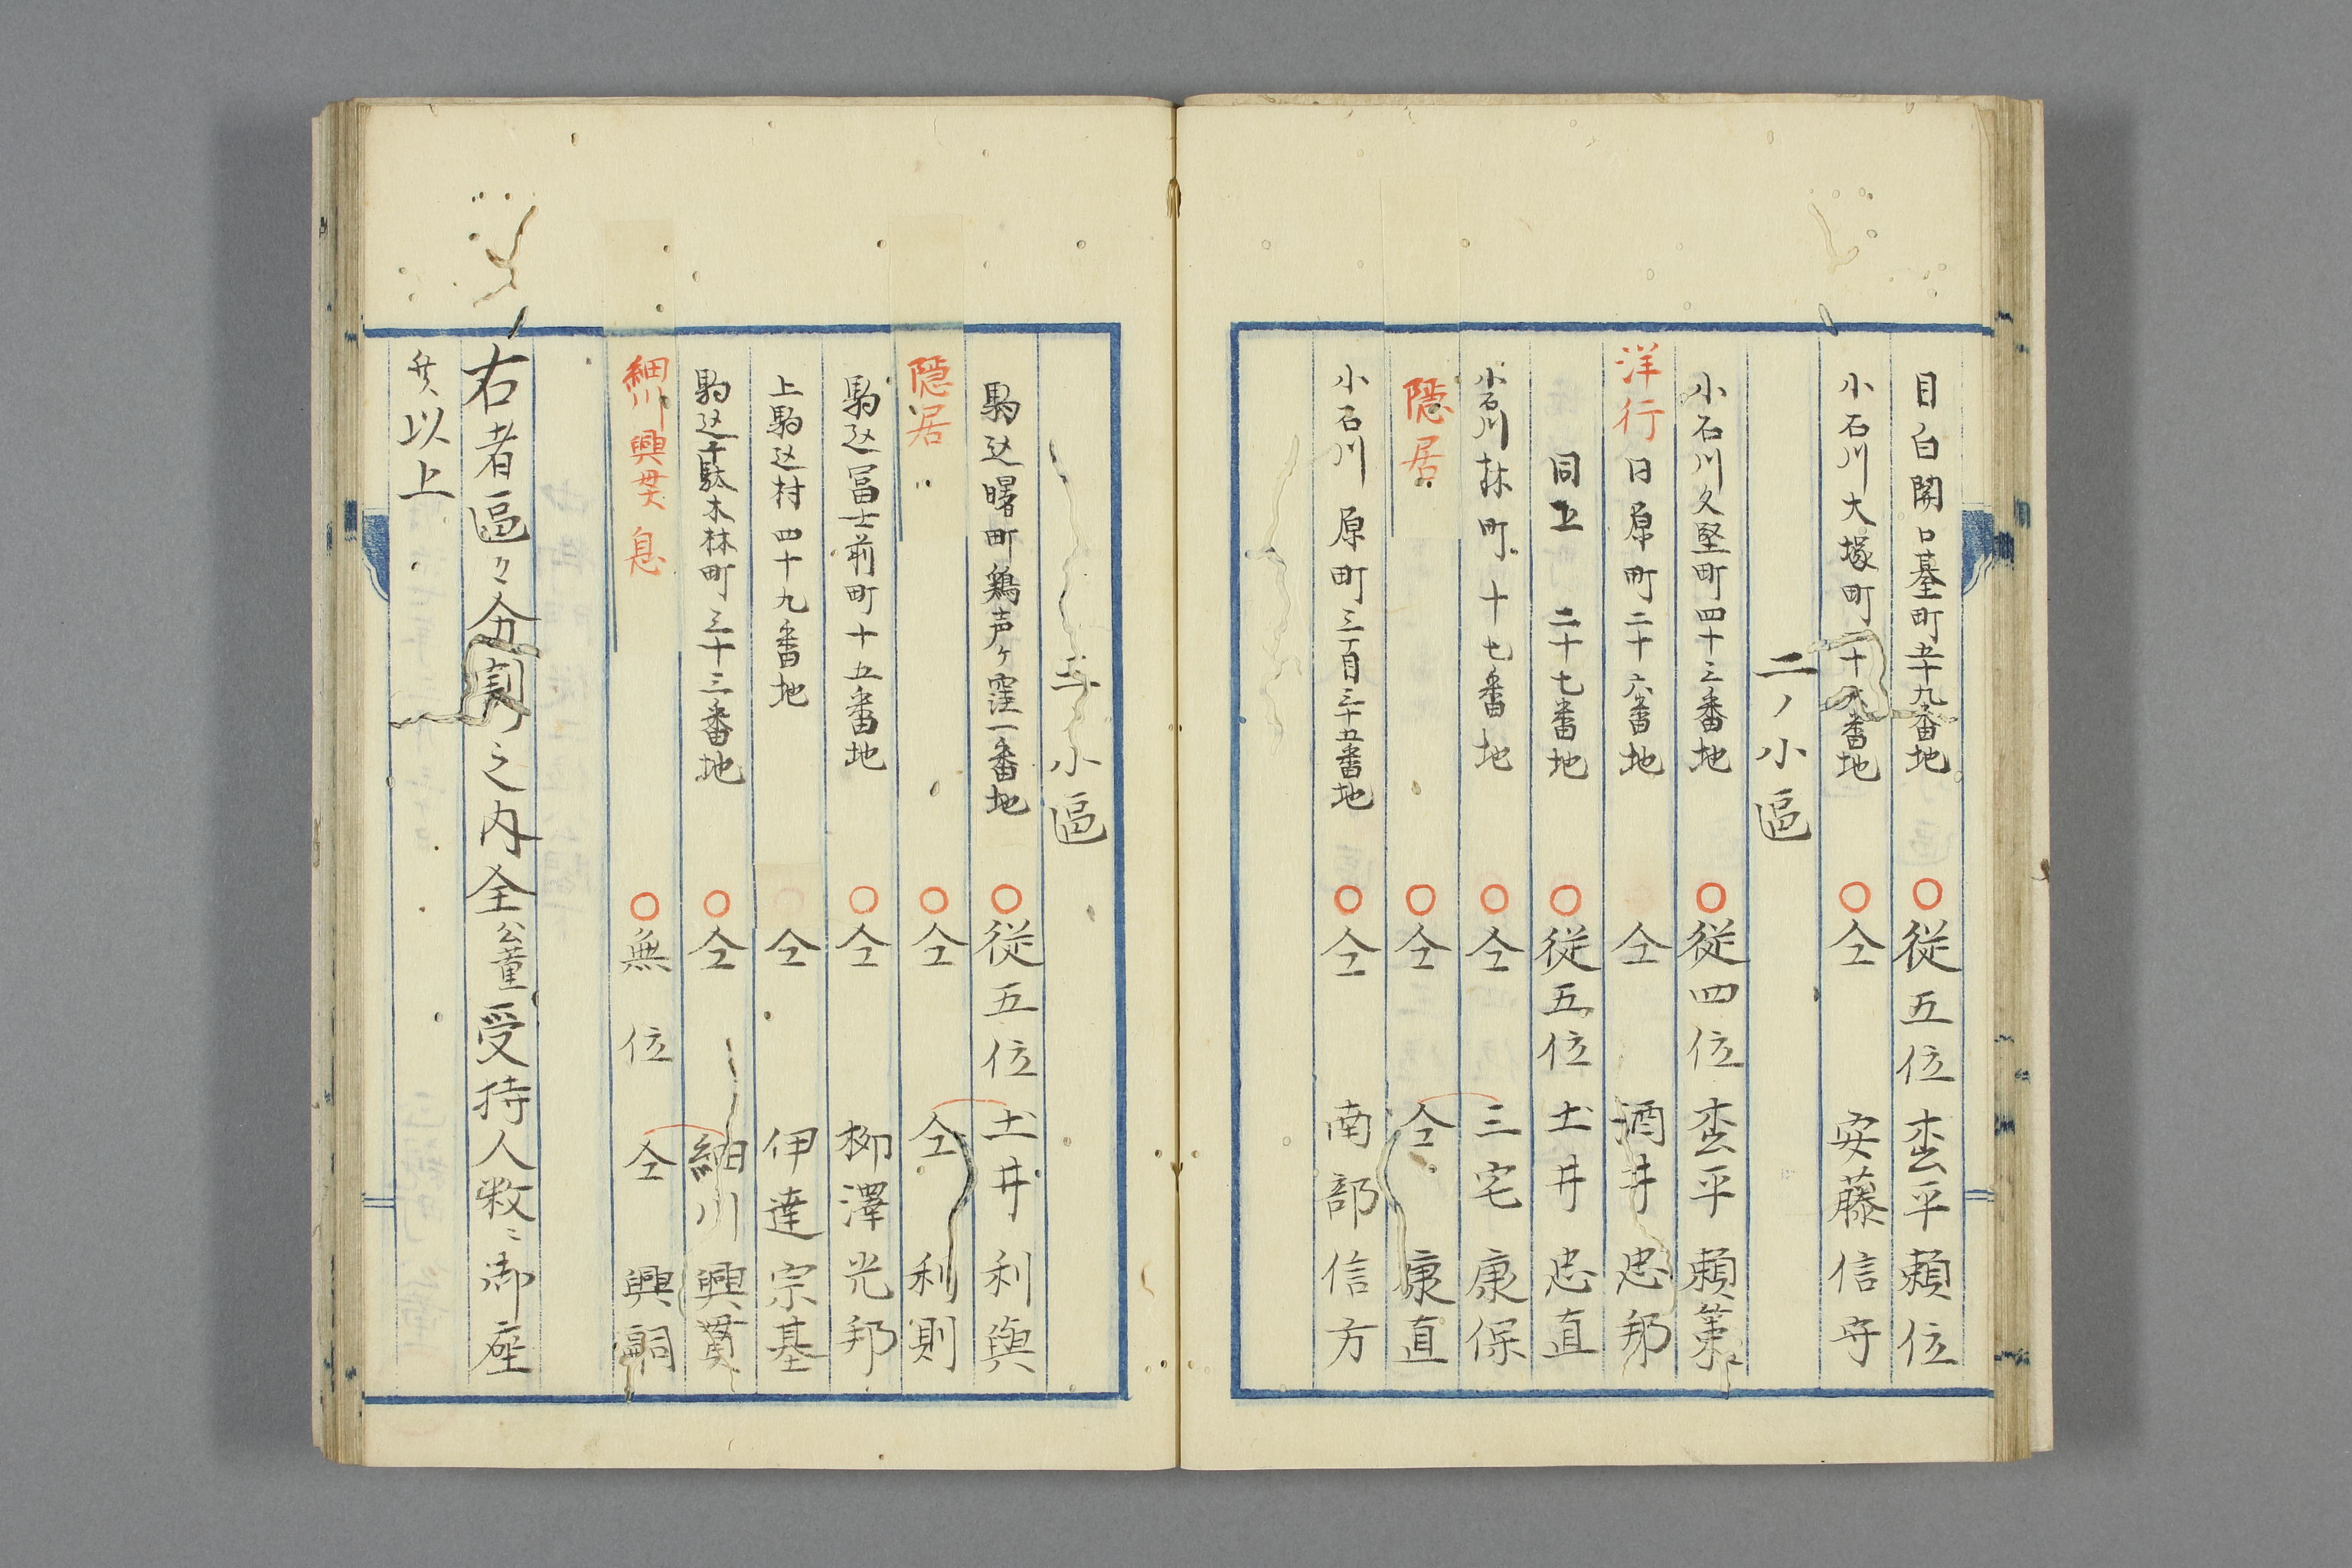 目白関口臺町五十九番地 ○従五位 枩平頼位
小石川大塚町二十八番地 ○仝 安藤信守
二ノ小區
小石川久堅町四十三番地 ○従四位 枩平頼策
洋行 日原町二十六番地 仝 酒井忠邦
同 二十七番地 ○従五位 土井忠直
小石川林町十七番地 ○仝 三宅康保
隠居 ○仝 仝 康直
小石川原町三丁目三十五番地 ○仝 南部信方
三ノ小區
駒込曙町鶏声ヶ窪一番地 ○従五位 土井利與
隠居 ○仝 仝 利則
駒込冨士前町十五番地 ○仝 柳澤光邦
上駒込村四十九番地 仝 伊達宗基
駒込千駄木林町三十三番地 ○仝 細川興貫
細川興貫息 ○無位 仝 興嗣
右者區々分割之内全 受持人数ニ御座
候 以上